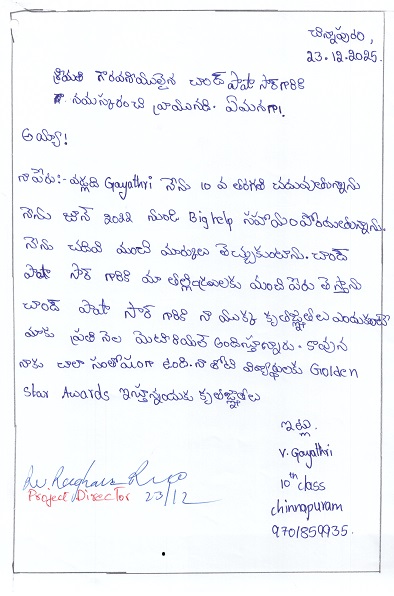 చిన్నాపురం,
23.12.2025.
శ్రీయుత గౌరవనీయులైన చాంద్ పాషా సార్ గారికి
నమస్కరించి వ్రాయునది. ఏమనగా!
అయ్యా!
నా పేరు:- వల్లది Gayathri నేను 10 వ తరగతి చదువుతున్నాను
నేను జూన్ 2022 నుండి Bighelp సహాయం పొందుతున్నాను.
నేను చదివి మంచి మార్కులు తెచ్చుకుంటాను. చాంద్
పాషా సార్ గారికి మా తల్లిదండ్రులకు మంచి పేరు తెస్తాను
చాంద్ పాషా సార్ గారికి నా యొక్క కృతజ్ఞతలు ఎందుకంటే
మాకు ప్రతి నెల మెటీరియల్ అందిస్తున్నారు. కావున
నాకు చాలా సంతోషంగా ఉంది. నా తోటి విద్యార్థులకు Golden
Star Awards ఇస్తున్నందుకు కృతజ్ఞతలు
ఇట్లు
V. Gayathri
10th class
chinnapuram
9701859935.
Project Director 23/12